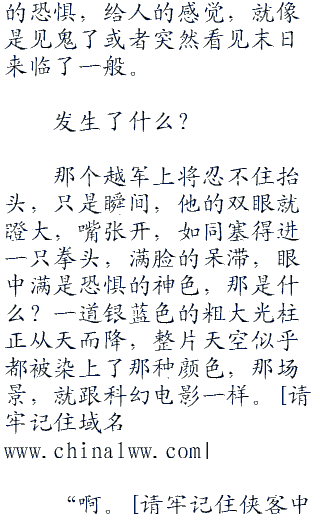 的恐惧，给人的感觉，就像
是见鬼了或者突然看见末日
来临了一般。
发生了什么？
那个越军上将忍不住抬
头，只是瞬间，他的双眼就
瞪大，嘴张开，如同塞得进
一只拳头，满脸的呆滞，眼
中满是恐惧的神色，那是什
么？一道银蓝色的粗大光柱
正从天而降，整片天空似乎
都被染上了那种颜色，那场
景，就跟科幻电影一样。[请
牢记住域名
www.china1ww.com|
“啊。[请牢记住侠客中